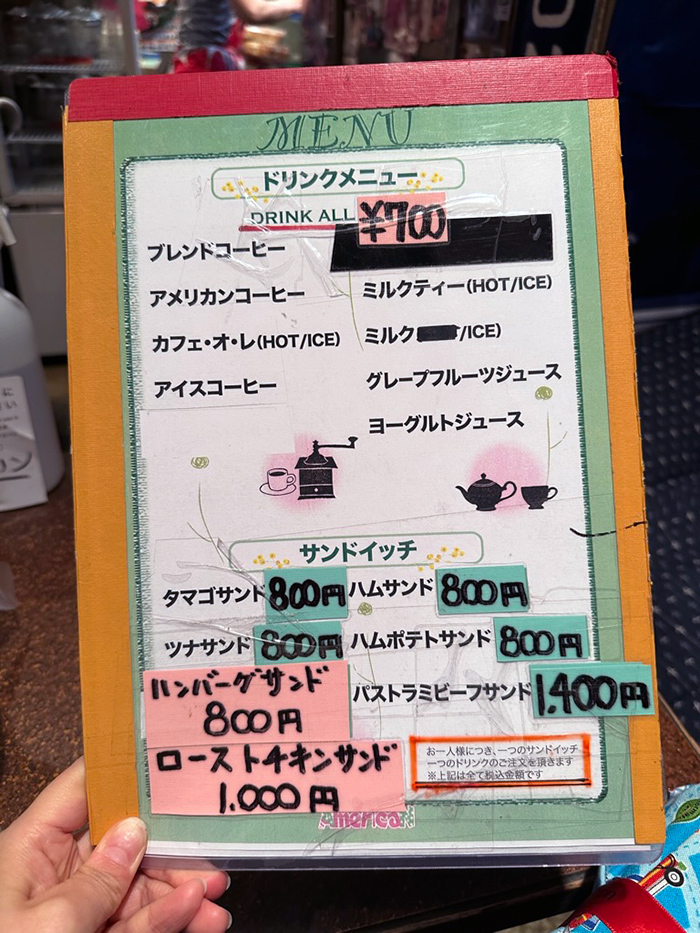 MENU
ドリンクメニュー
DRINK ALL ¥700
ブレンドコーヒー
アメリカンコーヒー
カフェ・オ・レ(HOT/ICE)
アイスコーヒー
ミルクティー(HOT/ICE)
ミルク /ICE)
グレープフルーツジュース
ヨーグルトジュース
サンドイッチ
タマゴサンド 800円
ハムサンド 800円
ツナサンド 800円
ハムポテトサンド 800円
ハンバーグサンド
800円
パストラミビーフサンド 1.400円
ローストチキンサンド
1.000円
お一人様につき、一つのサンドイッチ
一つのドリンクのご注文を頂きます
※上記は全て税込金額です
American